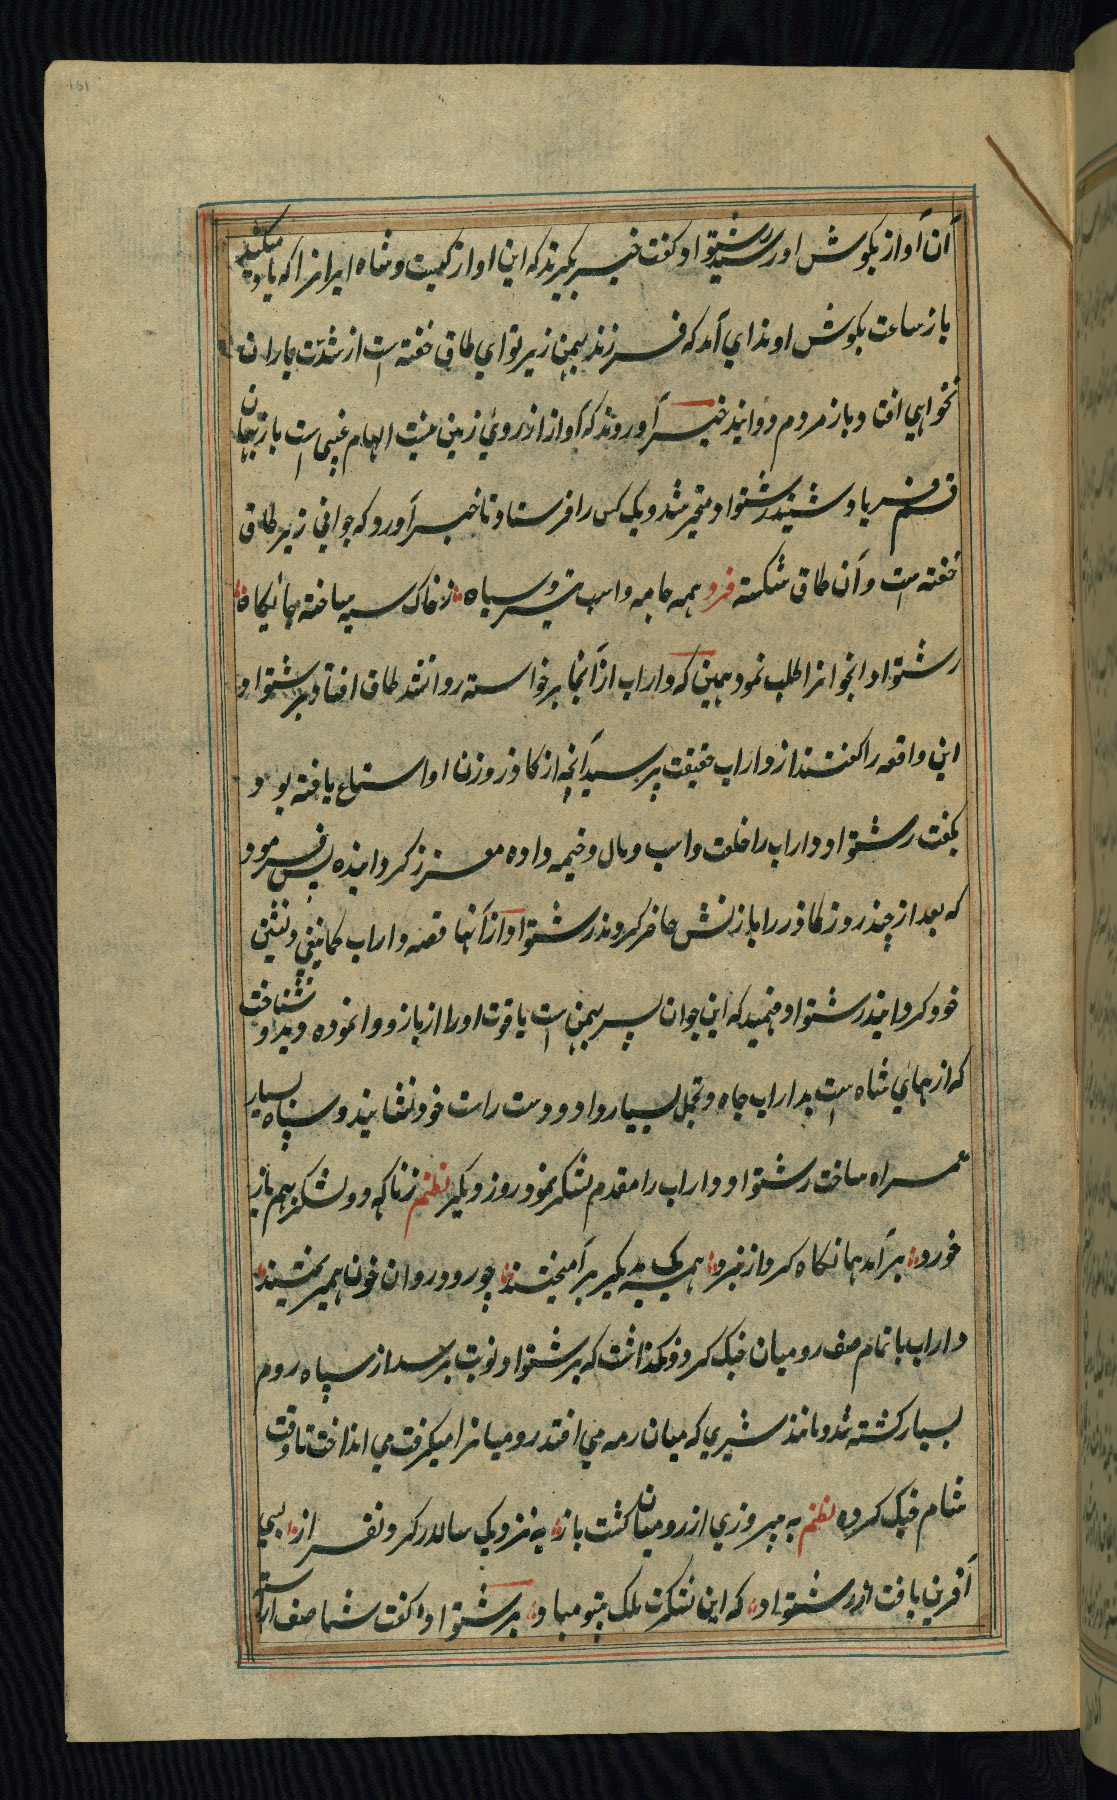 آن آواز بکوش او رسید رشتواد کفت خبر بکیرند که این اواز کیست و شاه ایرانرا که یاد میکند
باز ساعت بکوش او ندای آمد که فرزند بهمن زیر تو ای طاق خفته است از شدت باران
نخواهی افتاد باز مردم دوانید خبر آوردند که آواز از روی زمین نیست الهام غیبی است باز بهمان
قسم فریاد شنید رشتواد متحیر شد و یک کس را فرستاد تا خبر آورد که جوانی زیر طاق
خفته است و آن طاق شکسته فرد همه جامه و اسپ تر و سیاه ز خاک سیه ساخته جایکاه
رشتواد انجوانرا طلب نمود همین که داراب از آنجا برخواسته روانشد طاق افتاد برشتواد
این واقعه را کفتند از داراب حقیقت پرسید آنچه از کاذر و زن او استماع یافته بود
بکفت رشتواد داراب را خلعت و اسپ و مال و خیمه داده معزز کردانیده پس فرمود
که بعد از چند روز کاذر را با زنش حاضر کردند رشتواد از آنها قصه داراب کماینبغی
خود کردانید رشتواد فهمید که این جوان پسر بهمن است یاقوت او را از بازو وا نموده دید و شناخت
که از همای شاه است بداراب جاه و تجمل بسیار داد و دست راست خود نشانید و سپاه بسیار
همراه ساخت رشتواد داراب را مقدم لشکر نمود روز دیکر نظم زناکه دو لشکر بهم باز
خورد برآمد همانکاه کرد از نبرد همه یک بدیکر برآمیختند چو رود روان خون همی ریختند
داراب با تمام صف رومیان جنک کرد و نکذاشت که برشتواد نوبت برسد از سپاه روم
بسیار کشته شد و مانند شیری که میان رمه می افتد رومیانرا میکرفت می انداخت تا وقت
شام جنک کرده نظم به پیروزی از رومیان کشت باز به نزدیک سالار کردنفراز بسی
آفرین یافت از رشتواد که این لشکرت ملک بیتو مباد برشتواد کفت شما صف آراسته